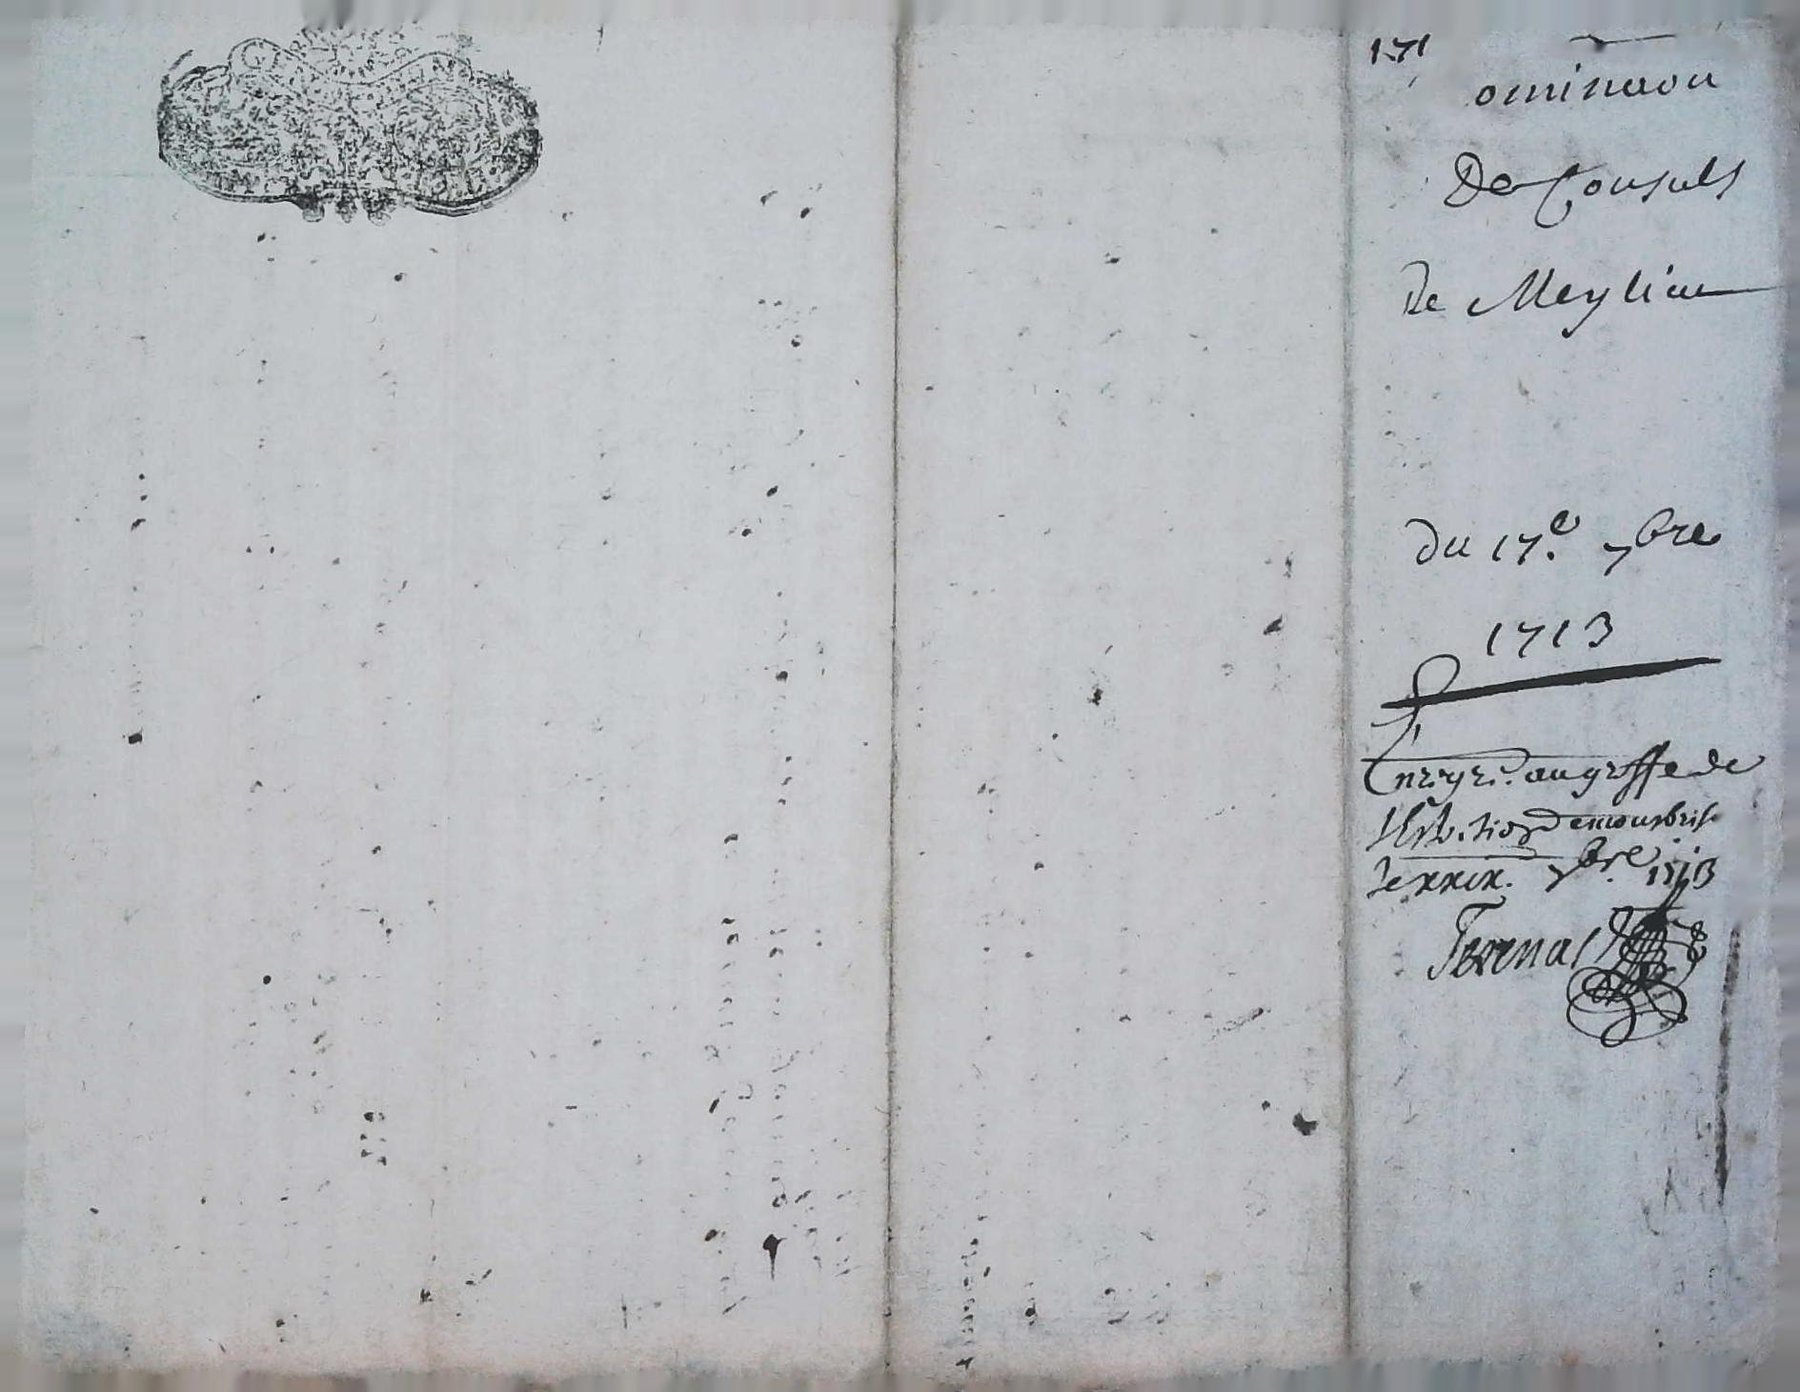 171
ominaon
De Consuls
de Meylieu
du 17e 7bre
1713
Enregre. au greffe de
demontbriso
le xxix. 7bre 1713